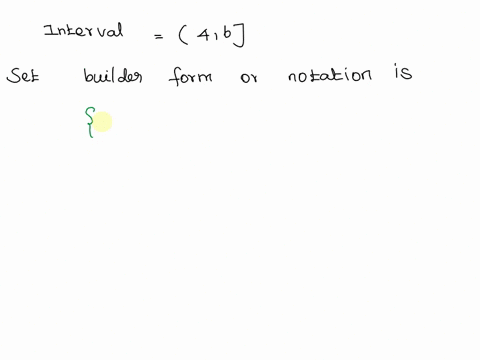 Interval = ( 4, 6 ]
Set builder form or notation is
{